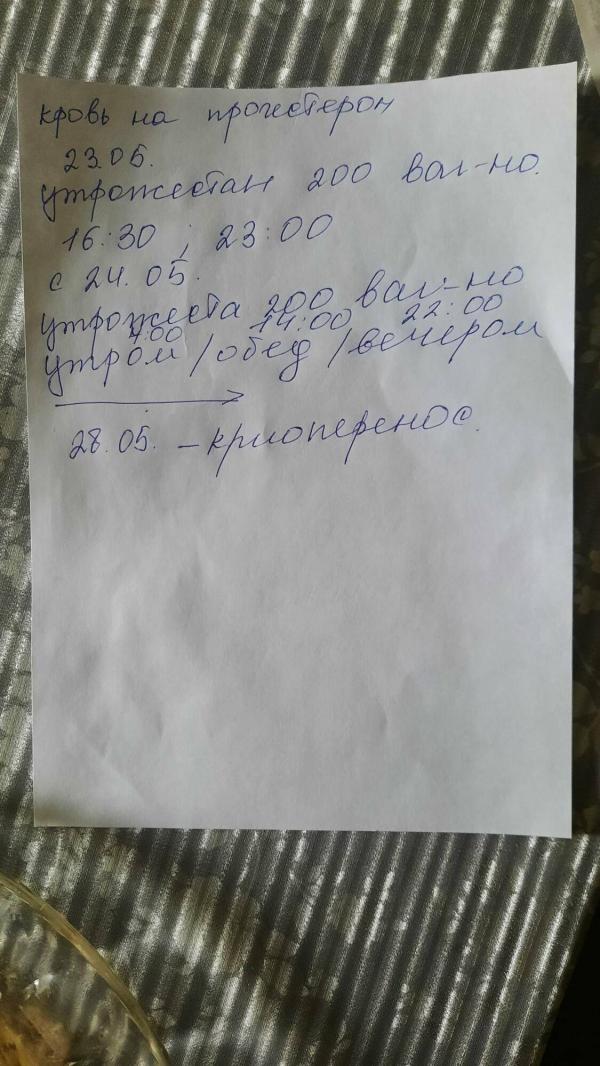 кровь на прогестерон
23.05.
утрожестан 200 ваг-но.
16:30 ; 23:00
с 24.05.
утрожеста 200 ваг-но
7:00 14:00 22:00
утром /обед /вечером
28.05. – криоперенос.